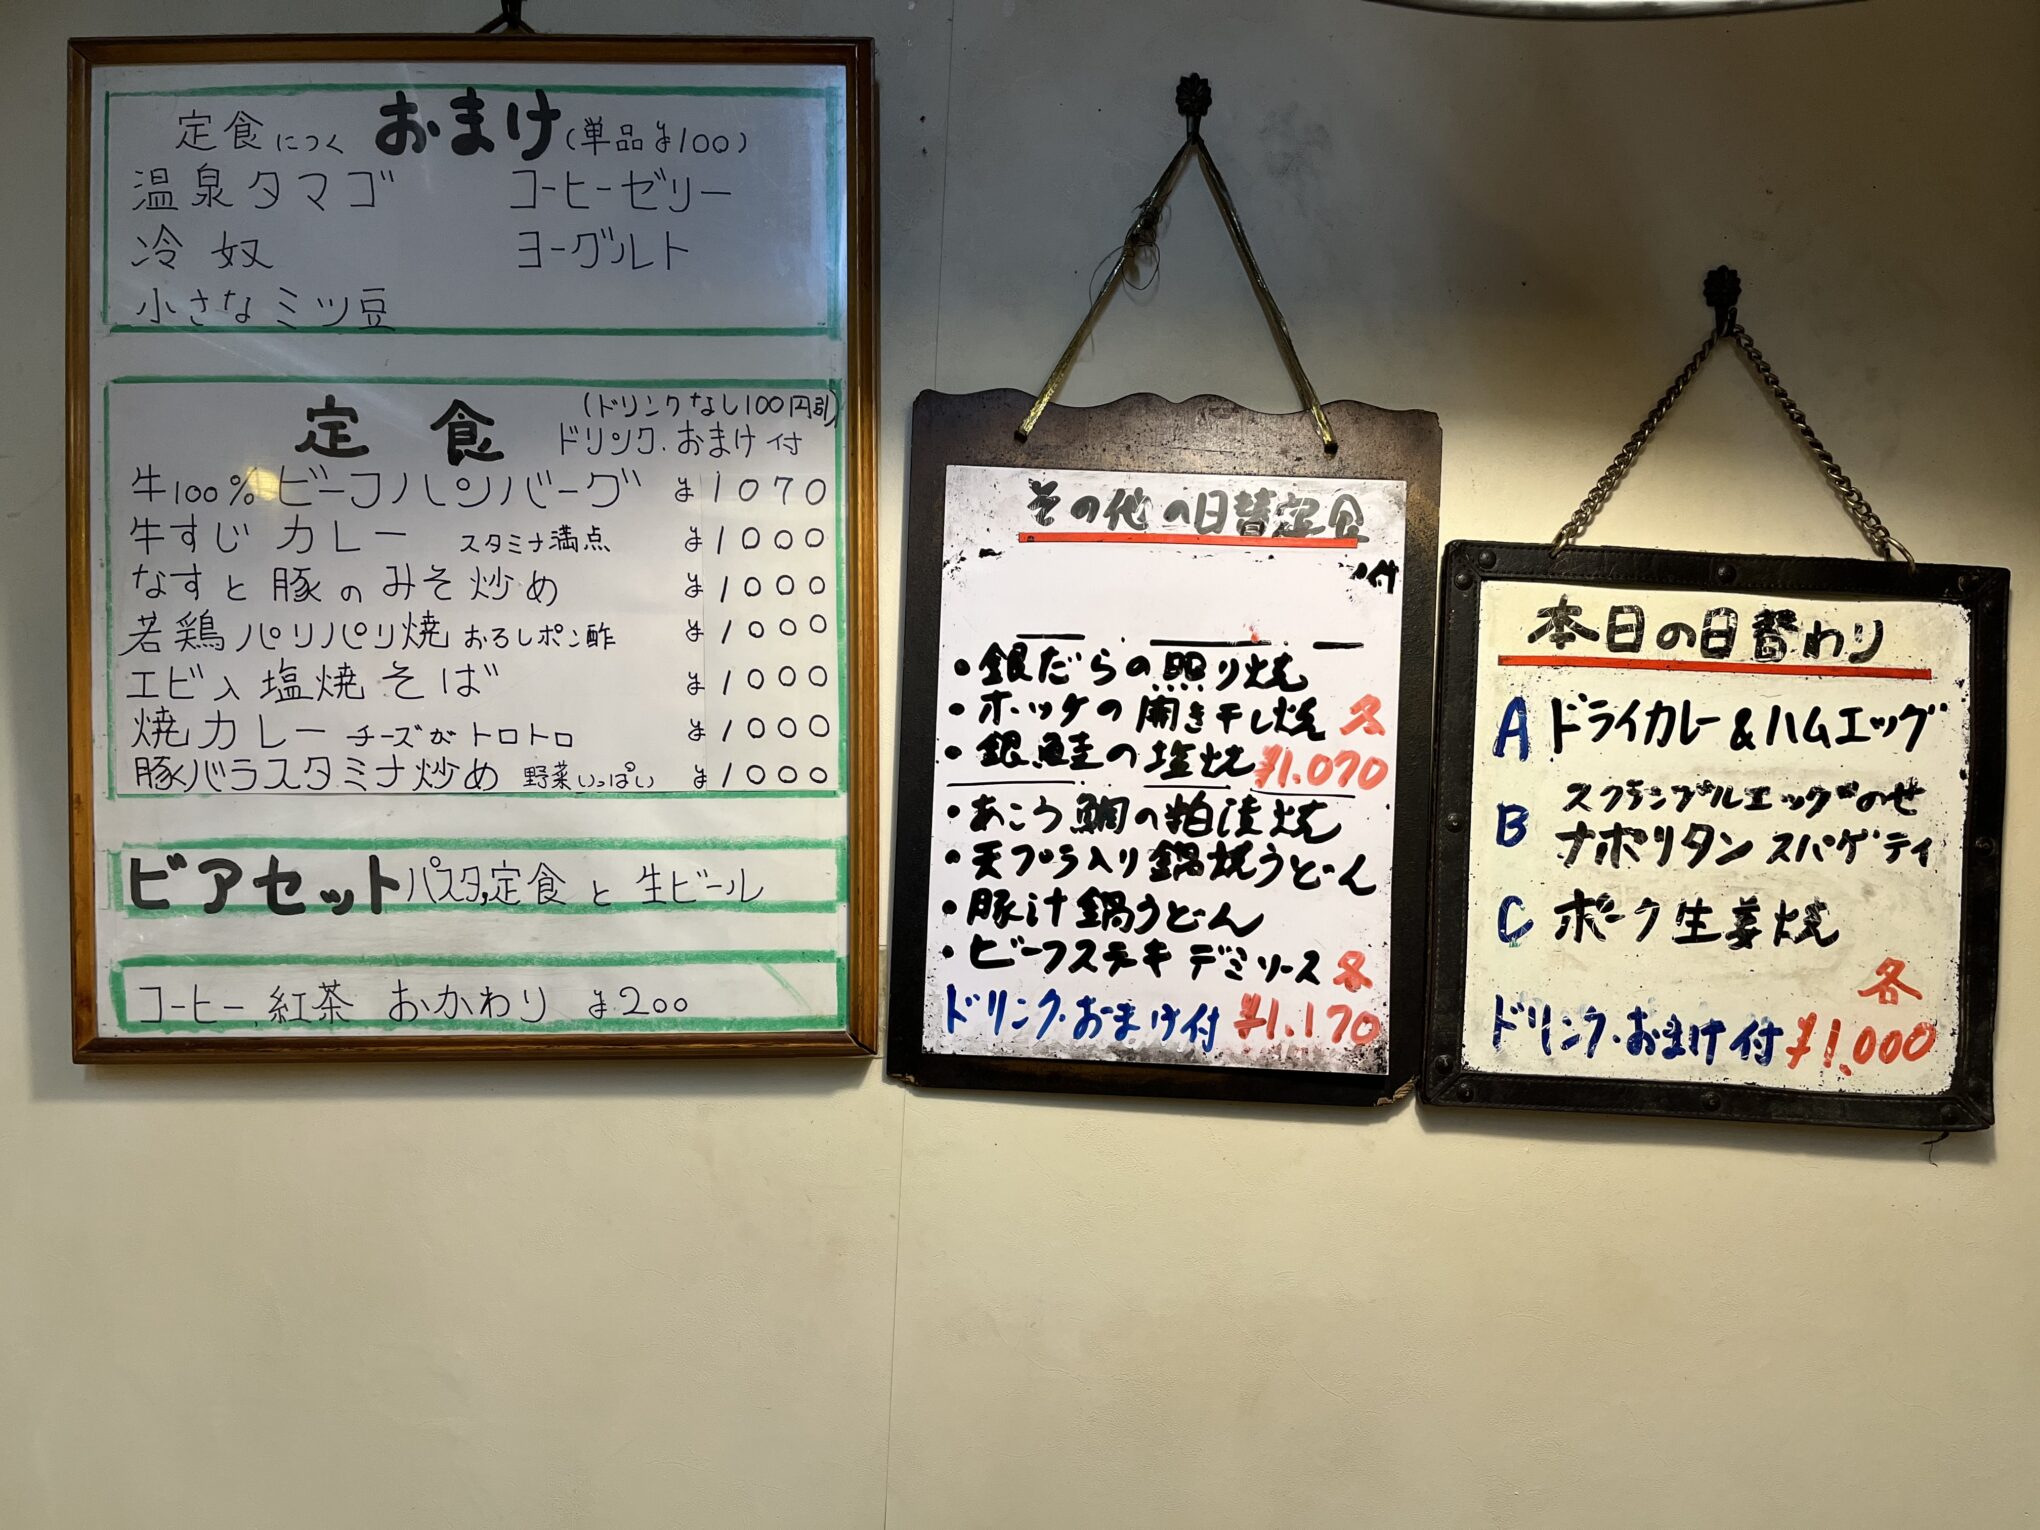 定食につく おまけ (単品¥100)
温泉タマゴ コーヒーゼリー
冷奴 ヨーグルト
小さなミツ豆
定食 (ドリンクなし100円引)
ドリンク.おまけ付
牛100%ビーフハンバーグ ¥1070
牛すじカレー スタミナ満点 ¥1000
なすと豚のみそ炒め ¥1000
若鶏パリパリ焼 おろしポン酢 ¥1000
エビ入塩焼そば ¥1000
焼カレー チーズがトロトロ ¥1000
豚バラスタミナ炒め 野菜いっぱい ¥1000
ビアセット パスタ,定食と生ビール
コーヒー.紅茶 おかわり ¥200
その他の日替定食
付
・銀だらの照り焼
・ホッケの開き干し焼 各
・銀鮭の塩焼 ¥1.070
・あこう鯛の粕漬焼
・天プラ入り鍋焼うどん
・豚汁鍋うどん
・ビーフステーキ デミソース 各
ドリンク・おまけ付 ¥1.170
本日の日替わり
A ドライカレー&ハムエッグ
B スクランブルエッグのせ
ナポリタン スパゲティ
C ポーク生姜焼
各
ドリンク・おまけ付 ¥1,000